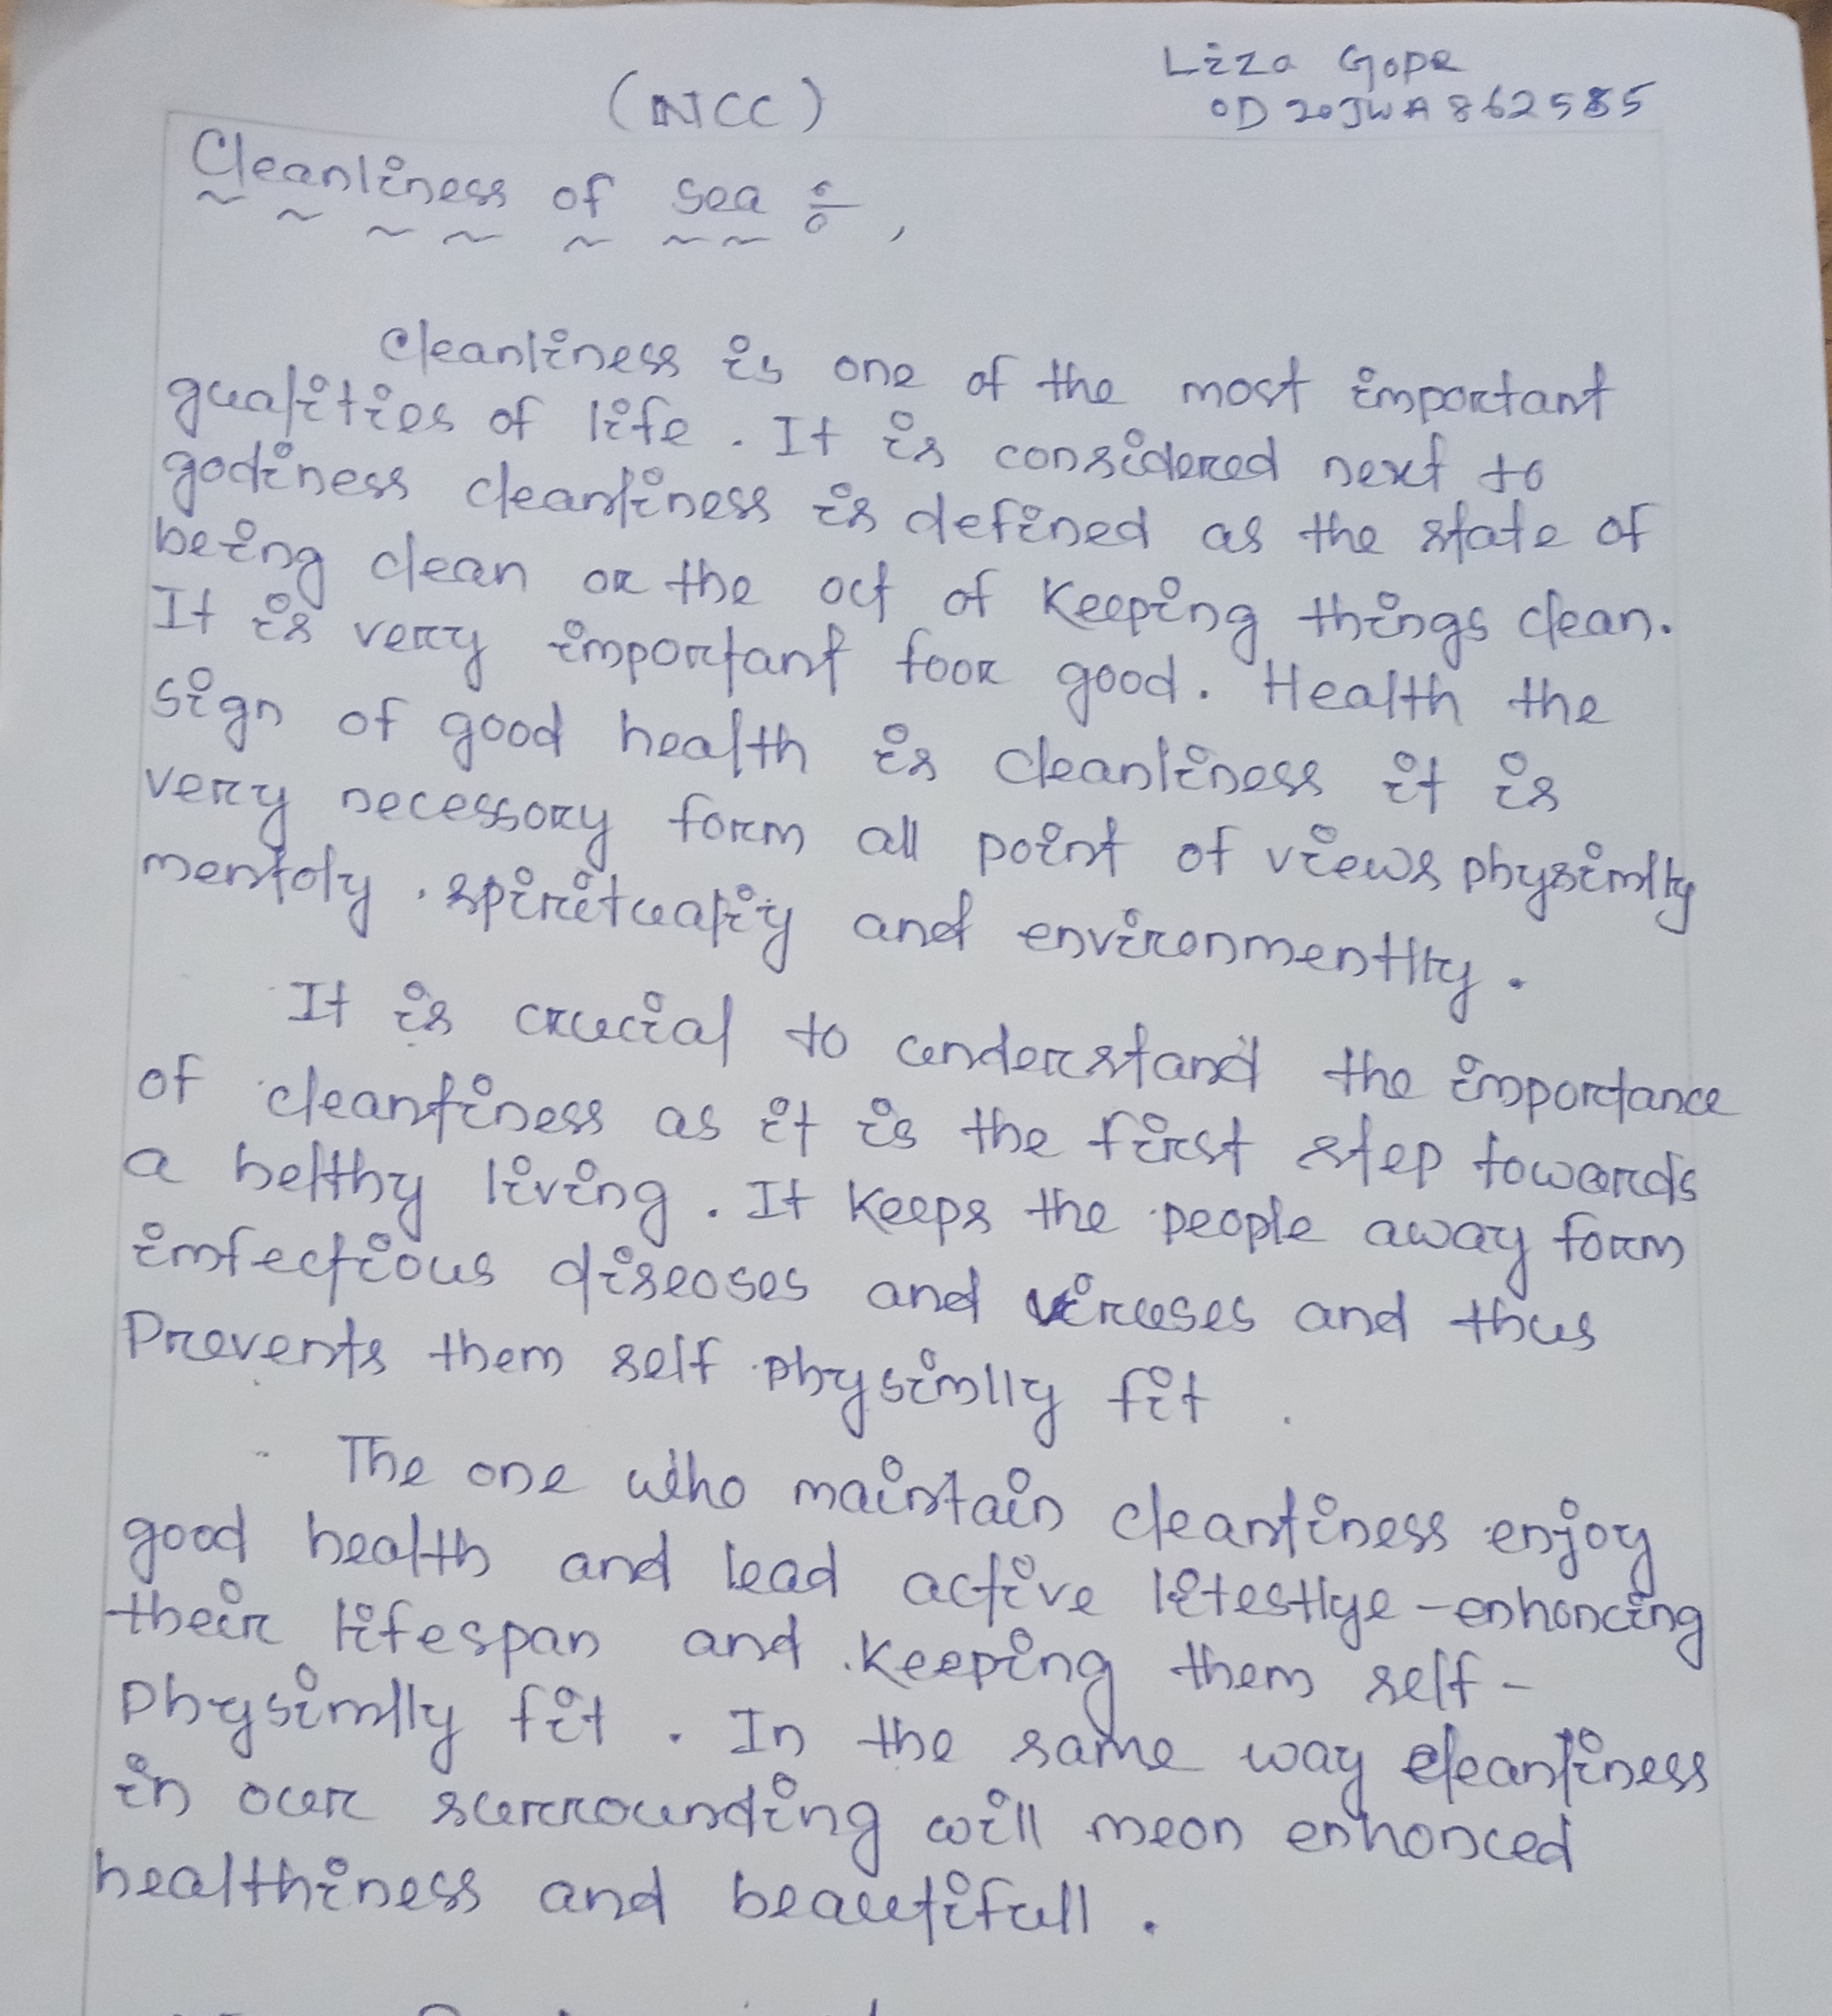 Liza Gope
(NCC)
OD20JWA862585
Cleanliness of sea :-,
Cleanliness is one of the most important
qualities of life. It is considered next to
godiness cleanliness is defined as the state of
being clean or the oct of keeping things clean.
It is very important foor good. Health the
sign of good health is cleanliness it is
very necessory form all point of views physimlly
mentoly. spirituality and environmentlly.
It is crucial to understand the importance
of cleanliness as it is the first step towards
a helthy living. It keeps the people away form
imfectious diseoses and viruses and thus
Prevents them self physimlly fit.
The one who maintain cleanliness enjoy
good health and lead active litestlye-enhoncing
their lifespan and keeping them self-
physimlly fit. In the same way cleanliness
in our surrounding will meon enhonced
healthiness and beautifull.